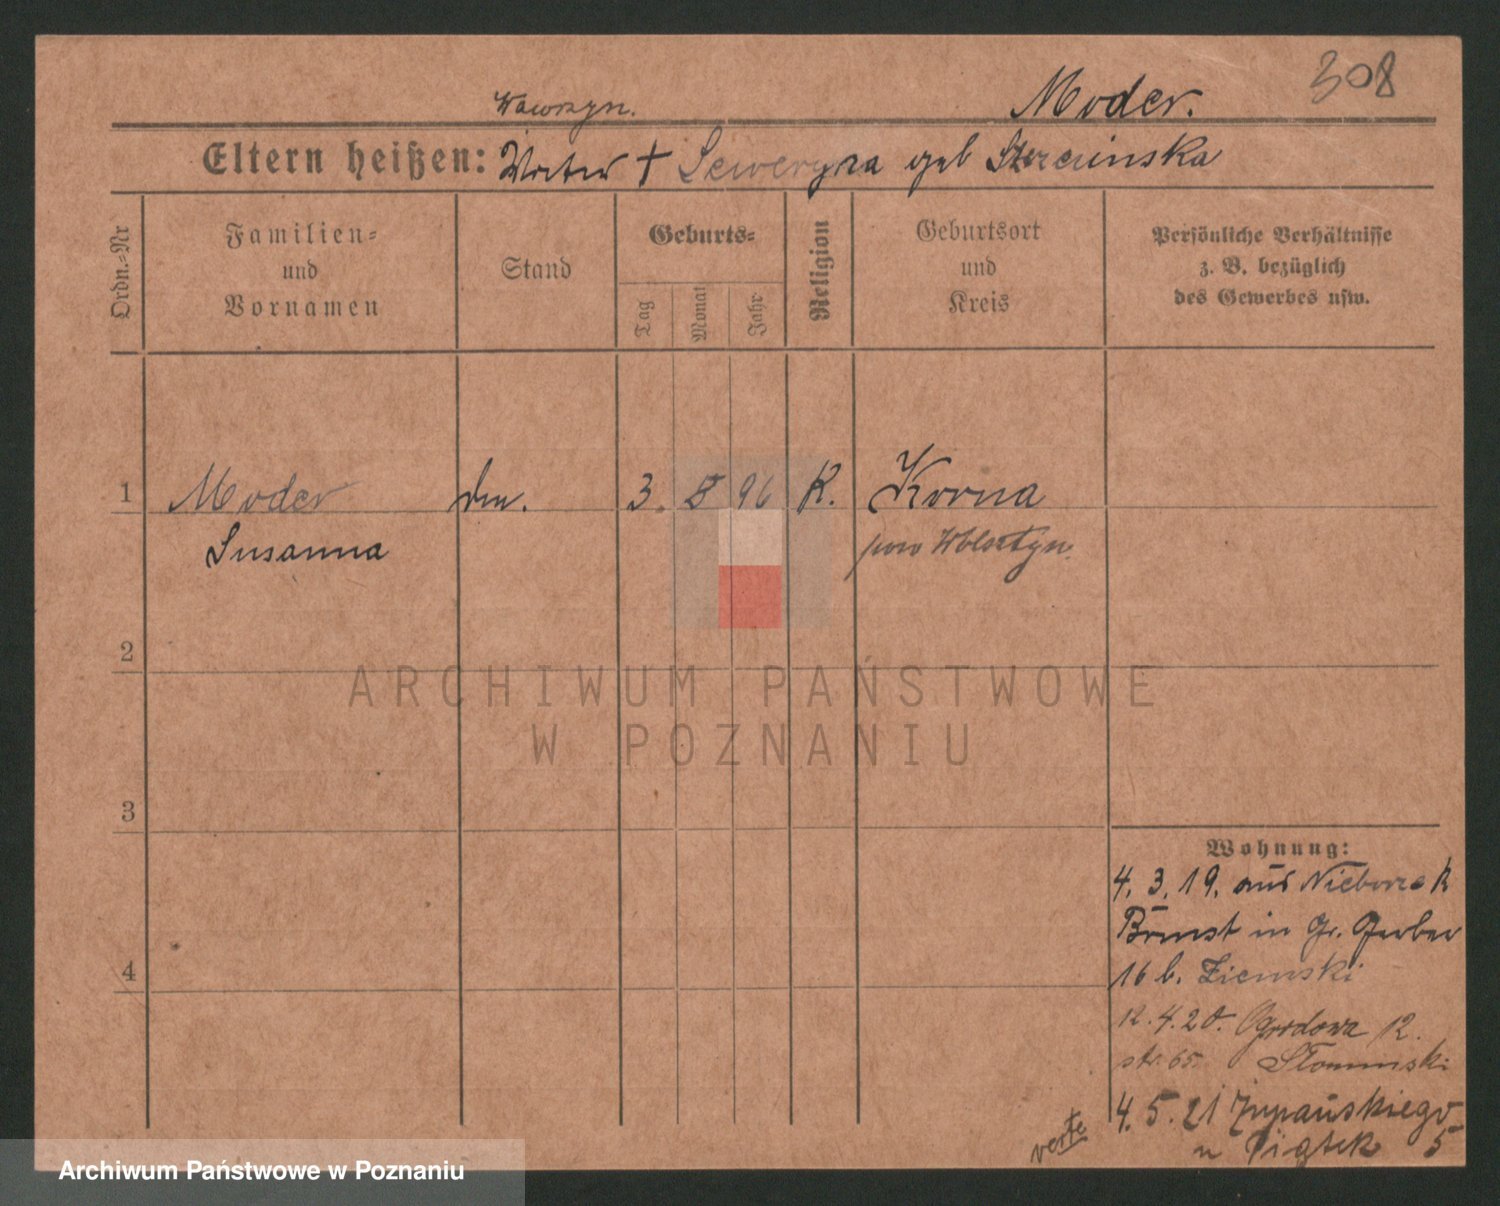 308
Moder.
Wawrzyn.
Eltern heißen: + Seweryna geb
Ordn.-Nr
Familien- und Vornamen
Stand
Geburts-
Tag
Monat
Jahr
Religion
Geburtsort und Kreis
Persönliche Verhältnisse
z. B. bezüglich
des Gewerbes usw.
1 Moder 3. 8 96 K. Korna
Susanna pow Wolsztyn.
2
ARCHIWUM PAŃSTWOWE
W POZNANIU
3
Wohnung:
4. 3. 19. aus
in Gr. Gerber
4 16 b. Ziemski
12. 4. 20. Ogrodowa 12.
str. 65. Słominski
4. 5. 21 Żupańskiego
verte u Piątek 5
Archiwum Państwowe w Poznaniu